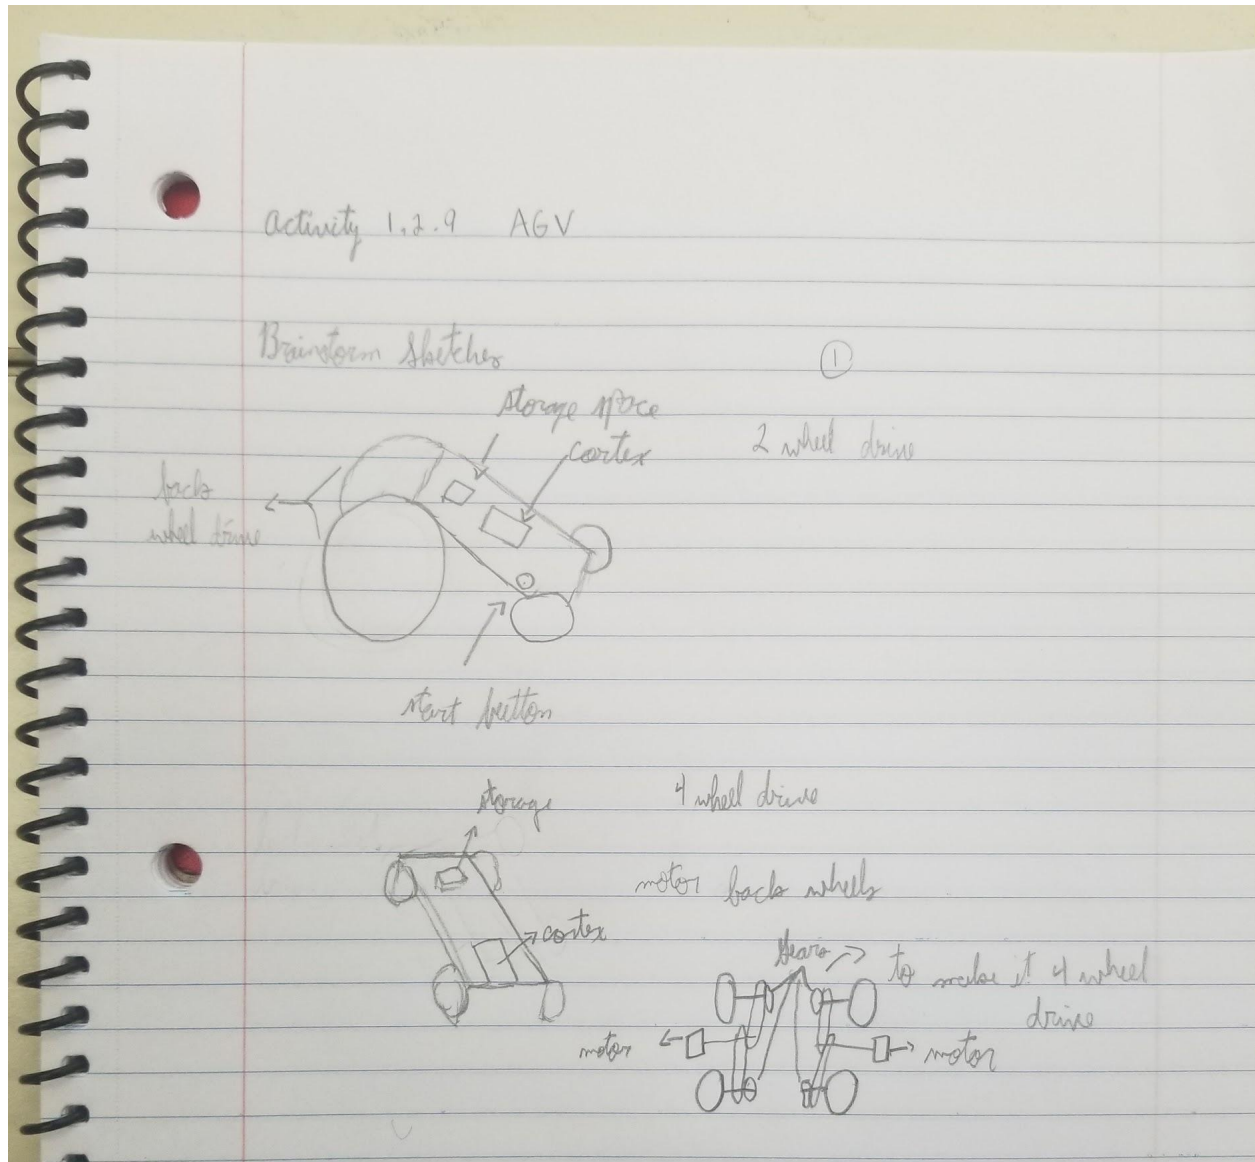 Activity 1.2.9 AGV
Brainstorm Sketches
1
storage space
cortex
2 wheel drive
back
wheel drive
start button
storage
4 wheel drive
motor back wheels
cortex
Gears
to make it 4 wheel
drive
motor
motor